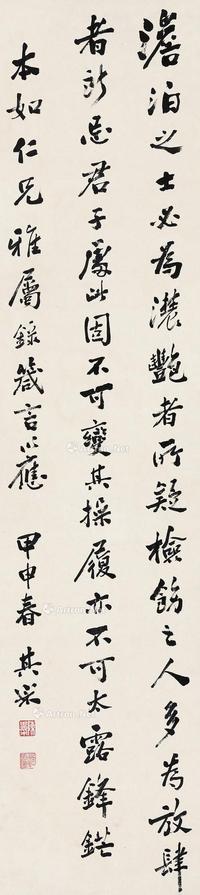 澹泊之士必為濃艷者所疑檢飭之人多為放肆
者所忌君子處此固不可變其操履亦不可太露鋒鋩
本如仁兄雅屬錄箴言以應 甲申春 其采